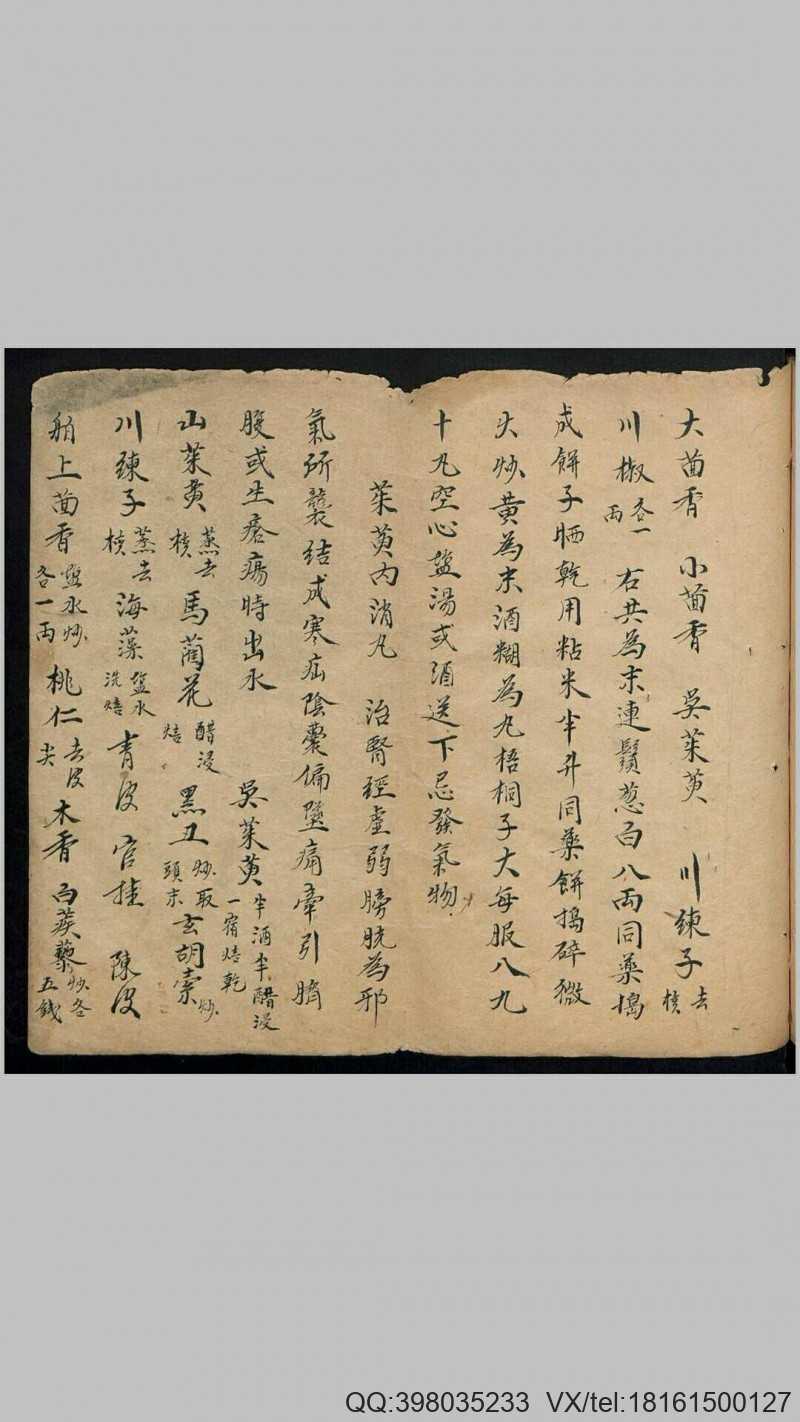 大茴香 小茴香 吳茱萸 川練子去核
川椒各一兩 右共為末連鬚葱白八兩同藥搗
成餅子晒乾用粘米半升同藥餅搗碎微
火炒黃為末酒糊為丸梧桐子大每服八九
十丸空心盐湯或酒送下忌發氣物
茱萸內消丸 治腎經虛弱膀胱為邪
氣所襲結成寒疝陰囊偏墜痛牽引臍
腹或生瘡瘍時出水 吳茱萸半酒半醋浸一宿焙乾
山茱萸蒸去核 馬藺花醋浸焙 黑丑炒取頭末 玄胡索炒
川練子蒸去核 海藻盐水洗焙 青皮 官桂 陳皮
舶上茴香盐水炒各一兩 桃仁去皮尖 木香 白蒺藜炒各五錢
QQ:398035233 VX/tel:18161500127